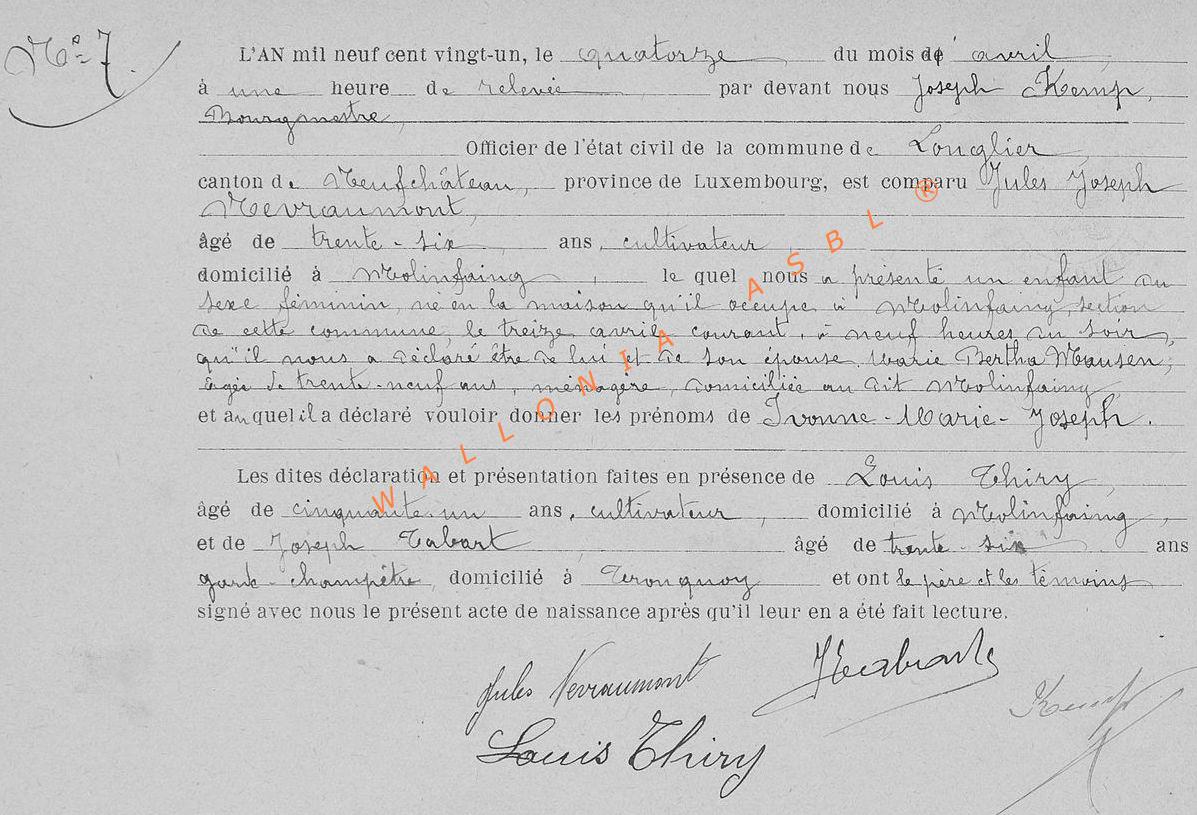 N° 7.
L'AN mil neuf cent vingt-un, le quatorze du mois d' avril,
à une heure de relevée, par devant nous Joseph Kemp,
Bourgmestre,
Officier de l'état civil de la commune de Longlier,
canton de Neufchâteau, province de Luxembourg, est comparu Jules Joseph
Nevraumont,
âgé de trente-six ans, cultivateur,
domicilié à Molinfaing, le quel nous a présenté un enfant du
sexe féminin, né en la maison qu'il occupe à Molinfaing, section
de cette commune, le treize avril courant, à neuf heures du soir,
qu'il nous a déclaré être de lui et de son épouse Marie Bertha Mausen,
âgée de trente-neuf ans, ménagère, domiciliée au dit Molinfaing,
et auquel il a déclaré vouloir donner les prénoms de Ivonne-Marie-Joseph.
Les dites déclaration et présentation faites en présence de Louis Thiry,
âgé de cinquante-un ans, cultivateur, domicilié à Molinfaing,
et de Joseph Tabart, âgé de trente-six ans
garde-champêtre, domicilié à Tronquoy et ont le père et les témoins
signé avec nous le présent acte de naissance après qu'il leur en a été fait lecture.
Jules Nevraumont
Kemp
Louis Thiry
WALLONIA ASBL ®